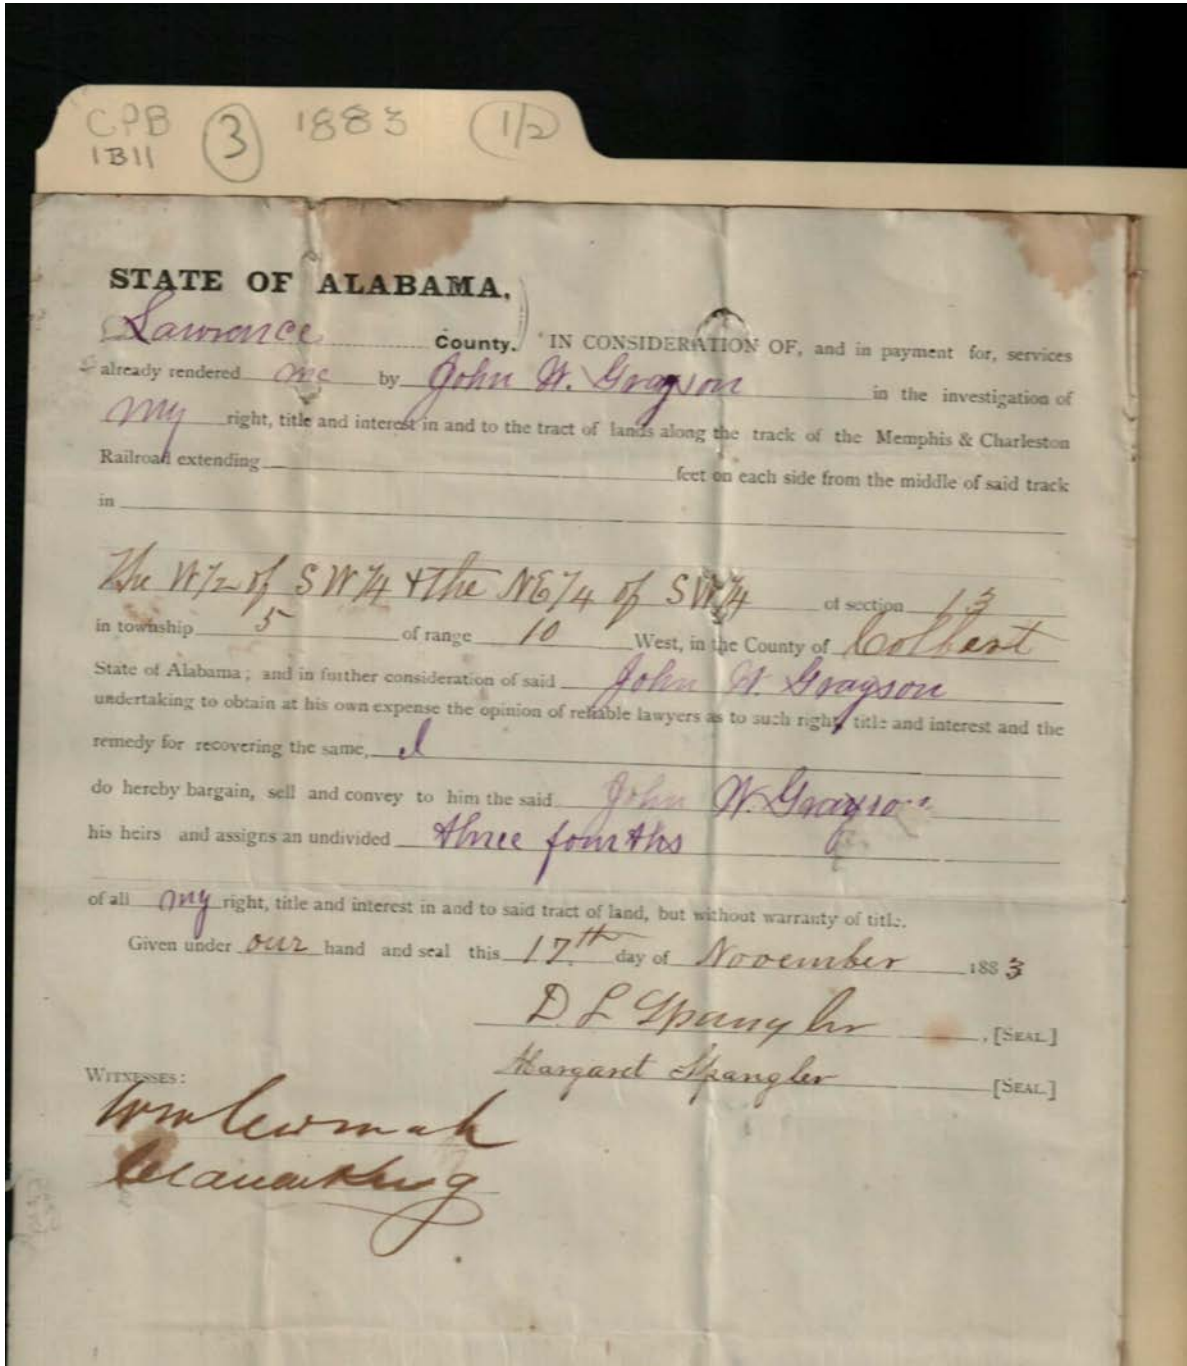 CPB 3 1883 1/2
1B11
STATE OF ALABAMA,
Lawrence County. IN CONSIDERATION OF, and in payment for, services
already rendered me by John W. Grayson in the investigation of
my right, title and interest in and to the tract of lands along the track of the Memphis & Charleston
Railroad extending feet on each side from the middle of said track
in
The W/2 of SW/4 & the NE/4 of SW/4 of section 13
in township 5 of range 10 West, in the County of Colbert
State of Alabama; and in further consideration of said John W. Grayson
undertaking to obtain at his own expense the opinion of reliable lawyers as to such right, title and interest and the
remedy for recovering the same, I
do hereby bargain, sell and convey to him the said John W. Grayson
his heirs and assigns an undivided three fourths
of all my right, title and interest in and to said tract of land, but without warranty of title.
Given under our hand and seal this 17th day of November 1883
D. L. Spangler, [SEAL.]
Margaret Spangler [SEAL.]
WITNESSES:
Wm
King